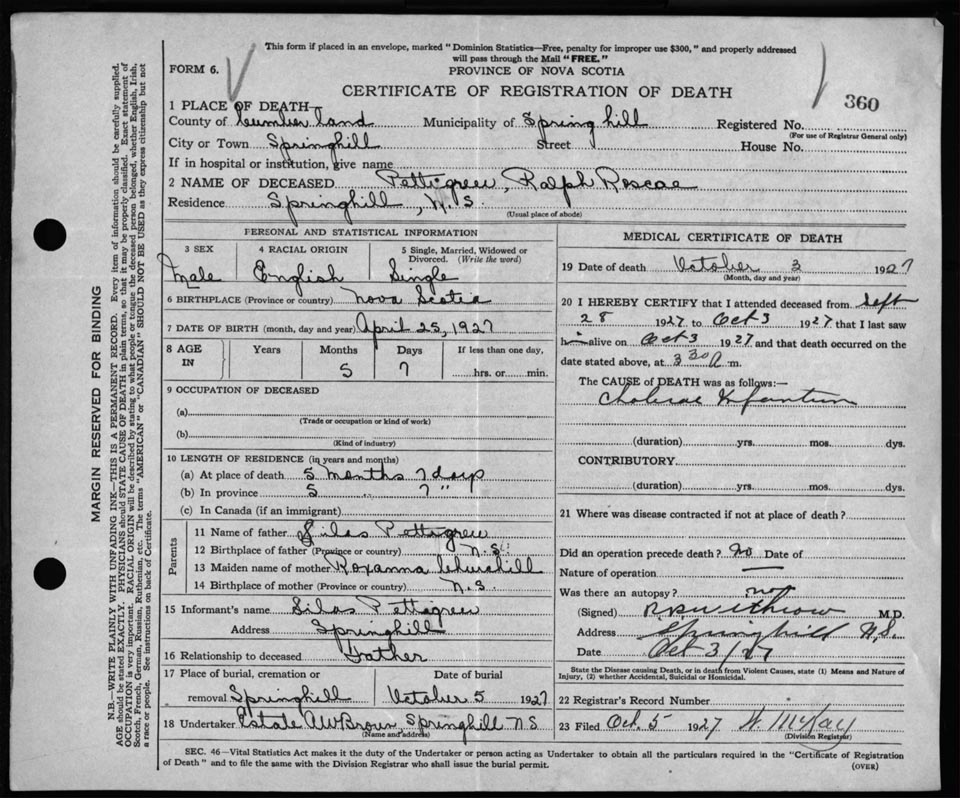 This form if placed in an envelope, marked "Dominion Statistics—Free, penalty for improper use $300," and properly addressed
will pass through the Mail "FREE."
FORM 6.
PROVINCE OF NOVA SCOTIA
CERTIFICATE OF REGISTRATION OF DEATH
360
1 PLACE OF DEATH—
County of Cumberland Municipality of Spring hill Registered No.
(For use of Registrar General only)
City or Town Springhill Street House No.
If in hospital or institution, give name
2 NAME OF DECEASED Pettigrew, Ralph Roscae
Residence Springhill, N.S.
(Usual place of abode)
PERSONAL AND STATISTICAL INFORMATION
3 SEX 4 RACIAL ORIGIN 5 Single, Married, Widowed or
Divorced. (Write the word)
Male English Single
6 BIRTHPLACE (Province or country) Nova Scotia
7 DATE OF BIRTH (month, day and year) April 25, 1927
8 AGE IN Years Months Days If less than one day,
5 7 hrs. or min.
9 OCCUPATION OF DECEASED
(a)
(Trade or occupation or kind of work)
(b)
(Kind of industry)
10 LENGTH OF RESIDENCE (in years and months)
(a) At place of death 5 months 7 days
(b) In province 5 " 7 "
(c) In Canada (if an immigrant)
Parents
11 Name of father Silas Pettigrew
12 Birthplace of father (Province or country) N.S.
13 Maiden name of mother Roxanna Churchill
14 Birthplace of mother (Province or country) N.S
15 Informant's name Silas Pettigrew
Address Springhill
16 Relationship to deceased Father
17 Place of burial, cremation or Date of burial
removal Springhill October 5 1927
18 Undertaker Estate AW Brown, Springhill N S
(Name and address)
MEDICAL CERTIFICATE OF DEATH
19 Date of death October 3 1927
(Month, day and year)
20 I HEREBY CERTIFY that I attended deceased from Sept
28 1927 to Oct 3 1927 that I last saw
him alive on Oct 3 1927 and that death occurred on the
date stated above, at 3 30 a m.
The CAUSE of DEATH was as follows:—
Cholerae Infantum
(duration) yrs. mos. dys.
CONTRIBUTORY
(duration) yrs. mos. dys.
21 Where was disease contracted if not at place of death?
Did an operation precede death? no Date of
Nature of operation —
Was there an autopsy? not
(Signed) M.D.
Address Springhill N.S.
Date Oct 3/27
State the Disease causing Death, or in death from Violent Causes, state (1) Means and Nature of
Injury, (2) whether Accidental, Suicidal or Homicidal.
22 Registrar's Record Number
23 Filed Oct. 5 1927 W. McKay
(Division Registrar)
SEC. 46—Vital Statistics Act makes it the duty of the Undertaker or person acting as Undertaker to obtain all the particulars required in the "Certificate of Registration
of Death" and to file the same with the Division Registrar who shall issue the burial permit.
(OVER)
MARGIN RESERVED FOR BINDING
N.B.—WRITE PLAINLY WITH UNFADING INK—THIS IS A PERMANENT RECORD. Every item of information should be carefully supplied.
AGE should be stated EXACTLY. PHYSICIANS should STATE CAUSE OF DEATH in plain terms, so that it may be properly classified. Exact statement of
OCCUPATION is very important. RACIAL ORIGIN will be described by stating to what people or tongue the deceased person belonged, whether English, Irish,
Scotch, French, German, Russian, Ruthenian, etc. The terms "AMERICAN" or "CANADIAN" SHOULD NOT BE USED as they express citizenship but not
a race or people. See instructions on back of Certificate.